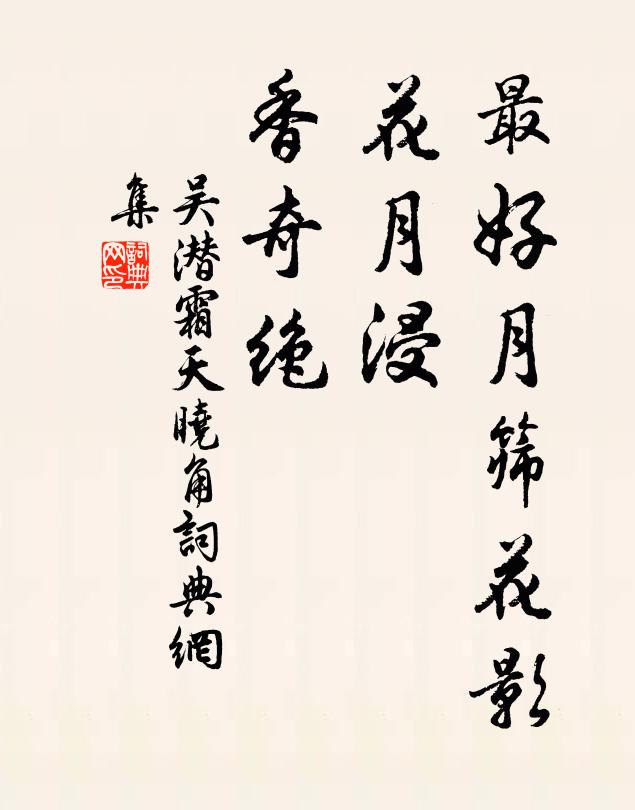 最好月筛花影
花月浸
香奇绝
吴潜霜天曉角詞典網
集
詞典
网印